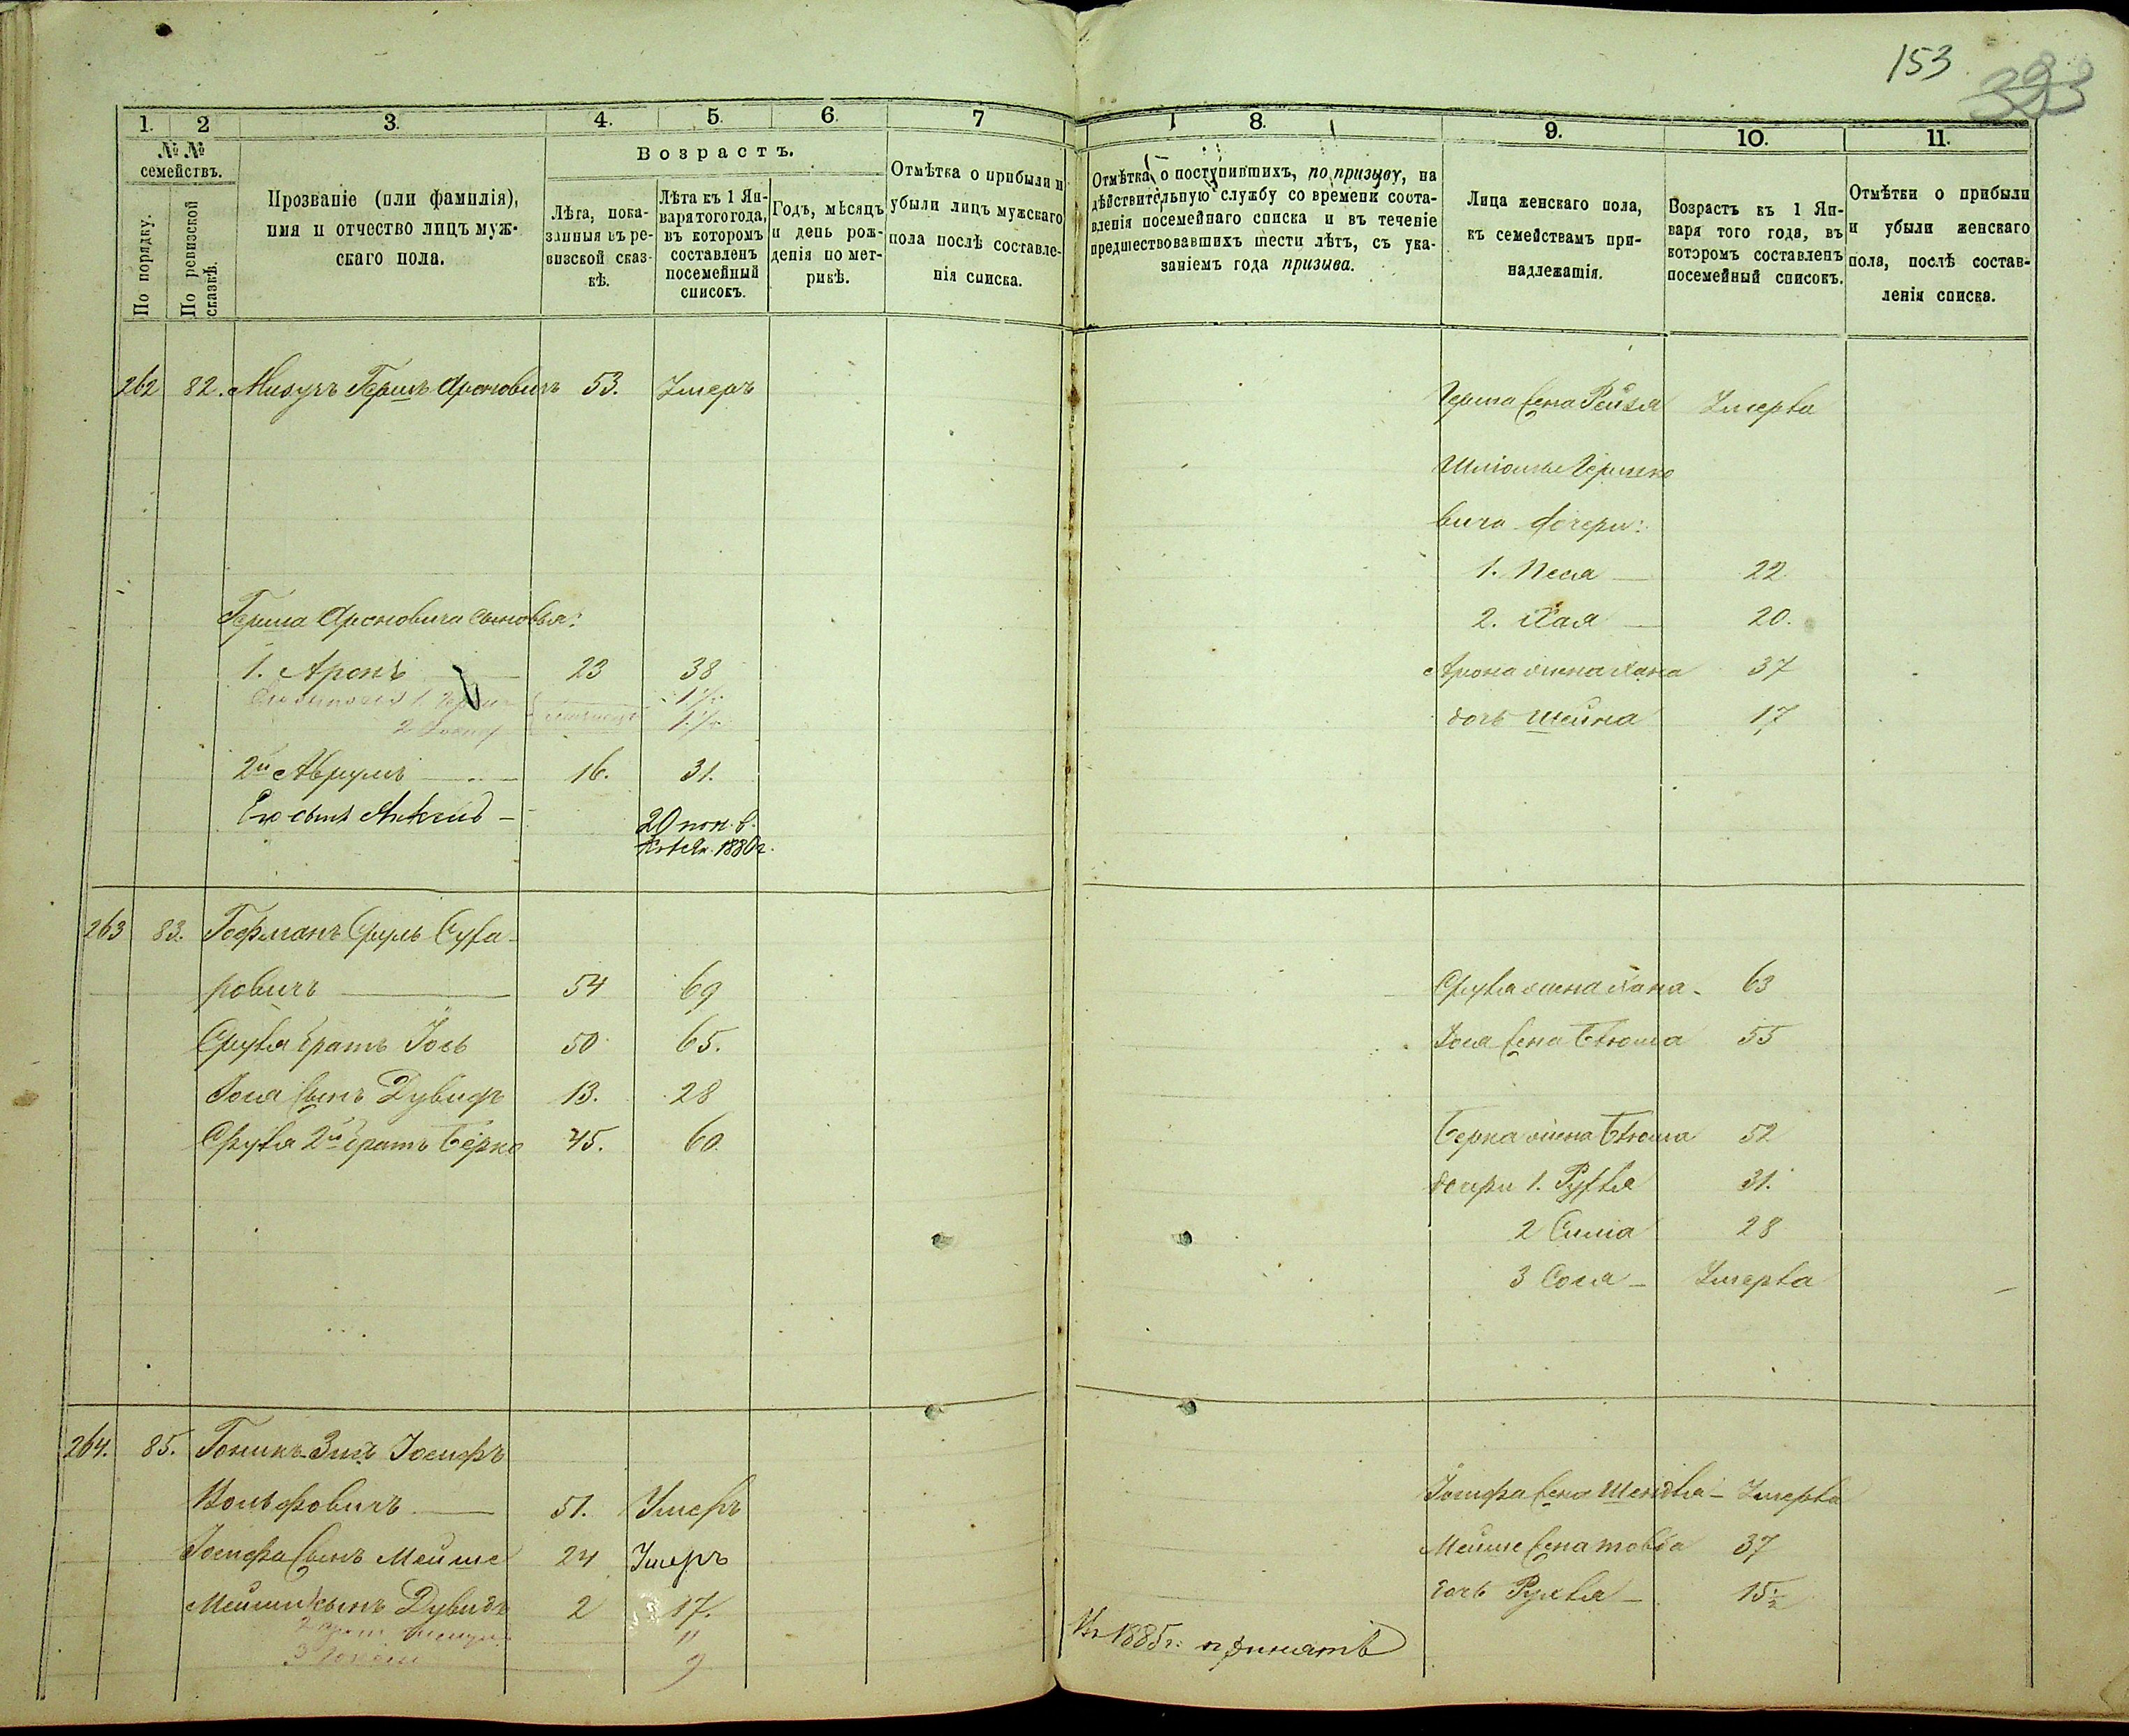 153
1. 2 3. 4. 5. 6. 7
№ № семействъ.
По порядку.
По ревизской сказкѣ.
Прозваніе (или фамилія),
имя и отчество лицъ муж-
скаго пола.
Возрастъ.
Лѣта, пока-
занныя въ ре-
визской сказ-
кѣ.
Лѣта къ 1 Ян-
варя того года,
въ которомъ
составленъ
посемейный
списокъ.
Годъ, мѣсяцъ
и день рож-
денія по мет-
рикѣ.
Отмѣтка о прибыли и
убыли лицъ мужскаго
пола послѣ составле-
нія списка.
8. 9. 10. 11.
Отмѣтка о поступившихъ, по призыву, на
дѣйствительную службу со времени соста-
вленія посемейнаго списка и въ теченіе
предшествовавшихъ шести лѣтъ, съ ука-
заніемъ года призыва.
Лица женскаго пола,
къ семействамъ при-
надлежащія.
Возрастъ къ 1 Ян-
варя того года, въ
которомъ составленъ
посемейный списокъ.
Отмѣтки о прибыли
и убыли женскаго
пола, послѣ состав-
ленія списка.
262 82. Гершъ Ароновичъ 53. Умеръ
Герша жена Рейзя Умерла
Шліомы Гершко
вича дочери:
1. Песя 22
2. Хая 20.
Герша Ароновича сыновья:
1. Аронъ 23 38
Арона жена Хана 37
1½
1½
дочь Шейна 17
2й Аврумъ 16. 31.
Его сынъ
20
1880г.
263 83. Гофманъ Сруль
ровичъ 54 69
Сруля жена Хана 63
Сруля братъ Іось 50 65.
Іося жена 55
Іося сынъ Дувидъ 13. 28
Сруля 2й братъ Берко 45. 60.
Берка жена 52
дочери 1. Рухля 31.
2 Сима 28
3 Сося Умерла
264. 85. Іосифъ
Вольфовичъ 51. Умеръ
Іосифа жена Шендля Умерла
Іосифа сынъ Мейше 24 Умеръ
Мейше жена 37
Мейши сынъ Дувидъ 2 17.
дочь Рухля 15½
2 11
3 9
Въ 1885г. принятъ